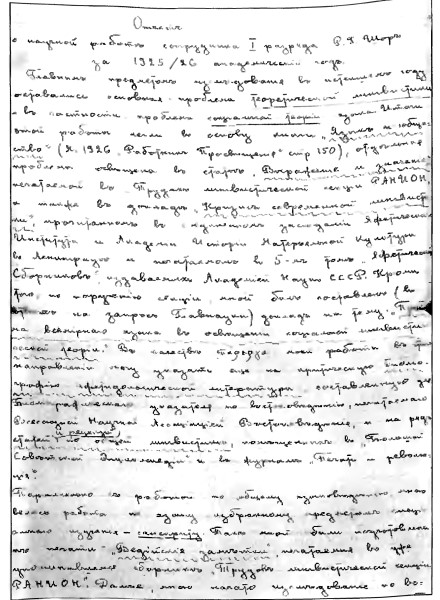 Отчетъ
о научной работѣ сотрудника I разряда Р. Шоръ
за 1925/26 академическiй годъ.
Главнымъ предметомъ изслѣдованiя въ истекшемъ году
оставались основныя проблемы теоретической лингвистики
и въ частности проблема социальной теорiи языка. Итоги
этой работы легли въ основу книги „Языкъ и общество“
(М. 1926. „Работникъ Просвѣщенiя“ стр. 150), отдѣльная
проблема освѣщена въ статьѣ „Выраженiе и значенiе“
печатаемой въ Трудахъ лингвистической секцiи РАНИОН,
а также въ докладѣ „Кризисъ современной лингвистики“,
прочитанномъ въ засѣданiи Яфетическаго
Института и Академiи Исторiи Матерiальной Культуры
въ Ленинградѣ и печатаемомъ въ 5-мъ томѣ „Яфетическихъ
Сборниковъ“, издаваемыхъ Академiей Наукъ СССР. Кромѣ
того, по порученiю секцiи, мной былъ поставленъ (въ
отвѣтъ на запросъ Главнауки) докладъ на тему:
всемiрнаго языка въ освѣщенiи социальной лингвистической
теорiи.“ Въ качествѣ работы въ этомъ
направленiи могу указать еще на критическую библiографiю
лингвистической литературы составленную для
Библiографическаго указателя по востоковѣдѣнiю, печатаемаго
Всесоюзной Научной Ассоцiацiей Востоковѣдѣнiя, и на рядъ
статей и рецензiй по общей лингвистикѣ, помѣщенныхъ въ „Большой
Совѣтской Энциклопедiи“ и въ журналѣ „Печать и революцiя“.
Параллельно съ работой по общему языковѣдѣнiю, мною
велась работа по языку избранному предметомъ
изученiя – санскриту. Такъ мной были подготовлены
къ печати „Ведiйскiя замѣтки“, печатаемыя въ уже
упоминавшемся сборникѣ „Трудовъ лингвистической секцiи
РАНИОН“. Далѣе, мною начато изслѣдованiе